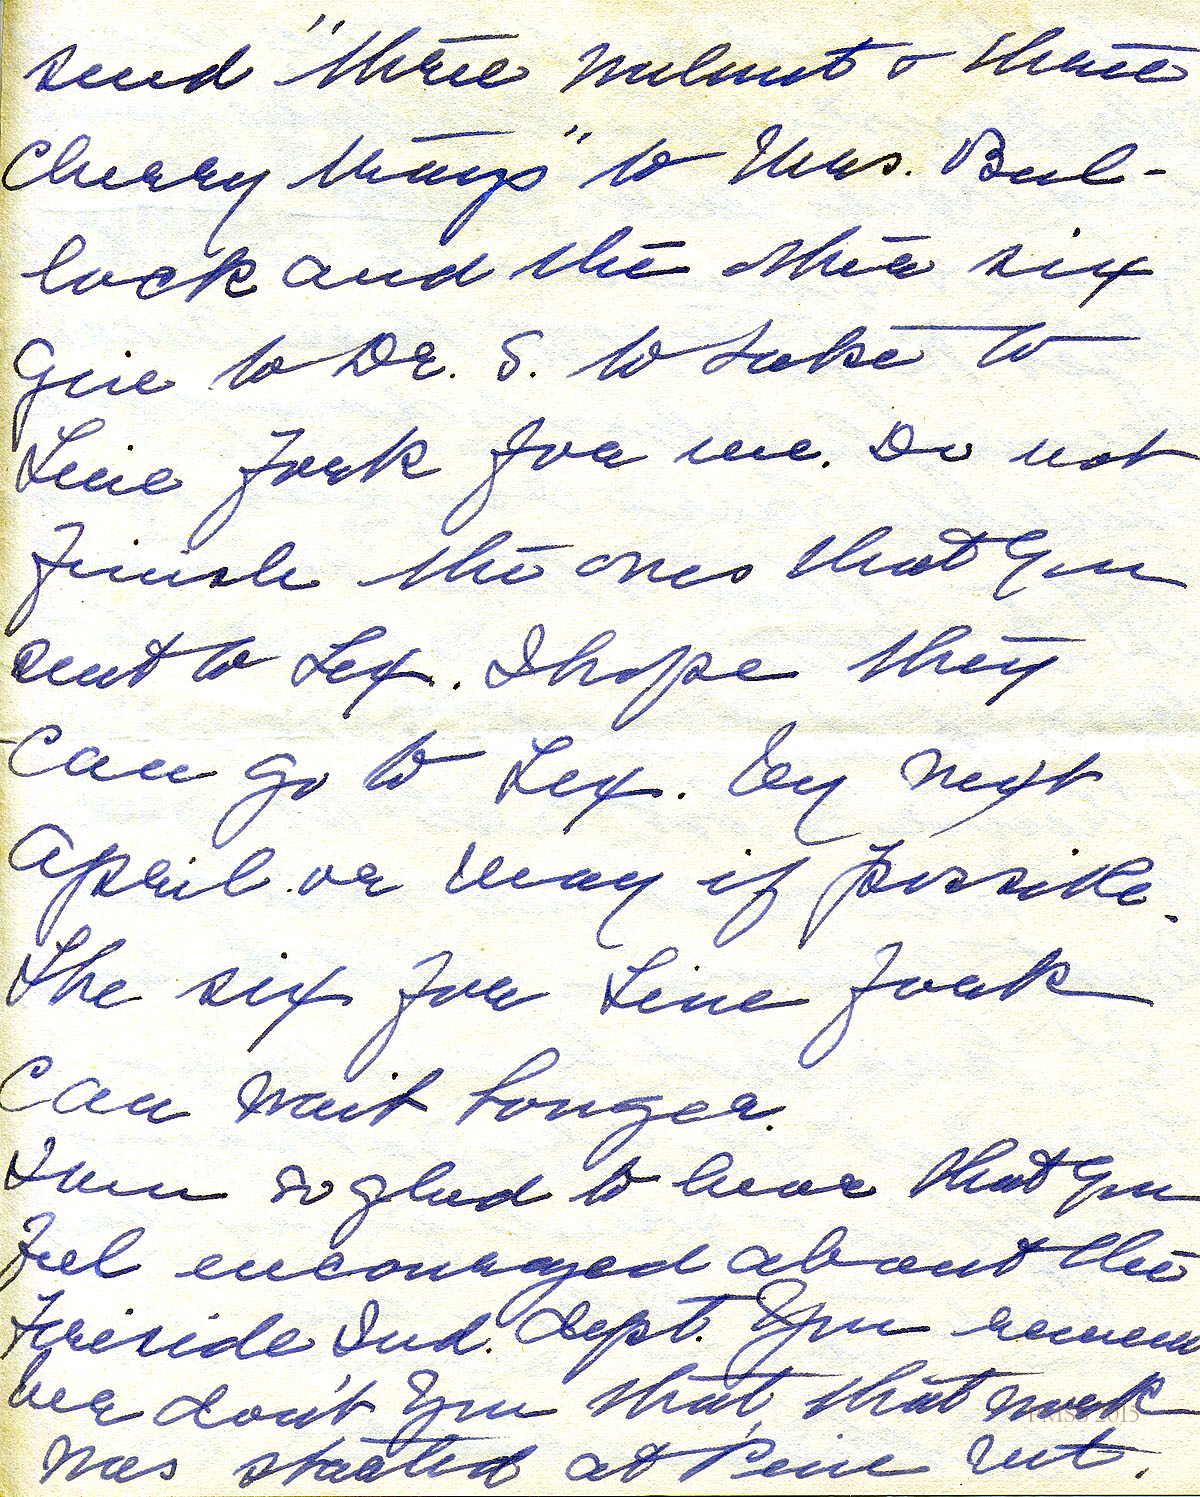 send "three walnut & three
cherry trays" to Mrs. Bul-
lock and the other six
give to Dr. S. to take to
Line Fork for me. Do not
finish the ones that you
sent to Lex. I hope they
can go to Lex. by next
April or May if possible.
The six for Line Fork
can wait longer.
I am so glad to hear that you
feel encouraged about the
Fireside Ind. dept. You remem
ber don't you that, that work
was started at Pine Mt.
PMSS 2015